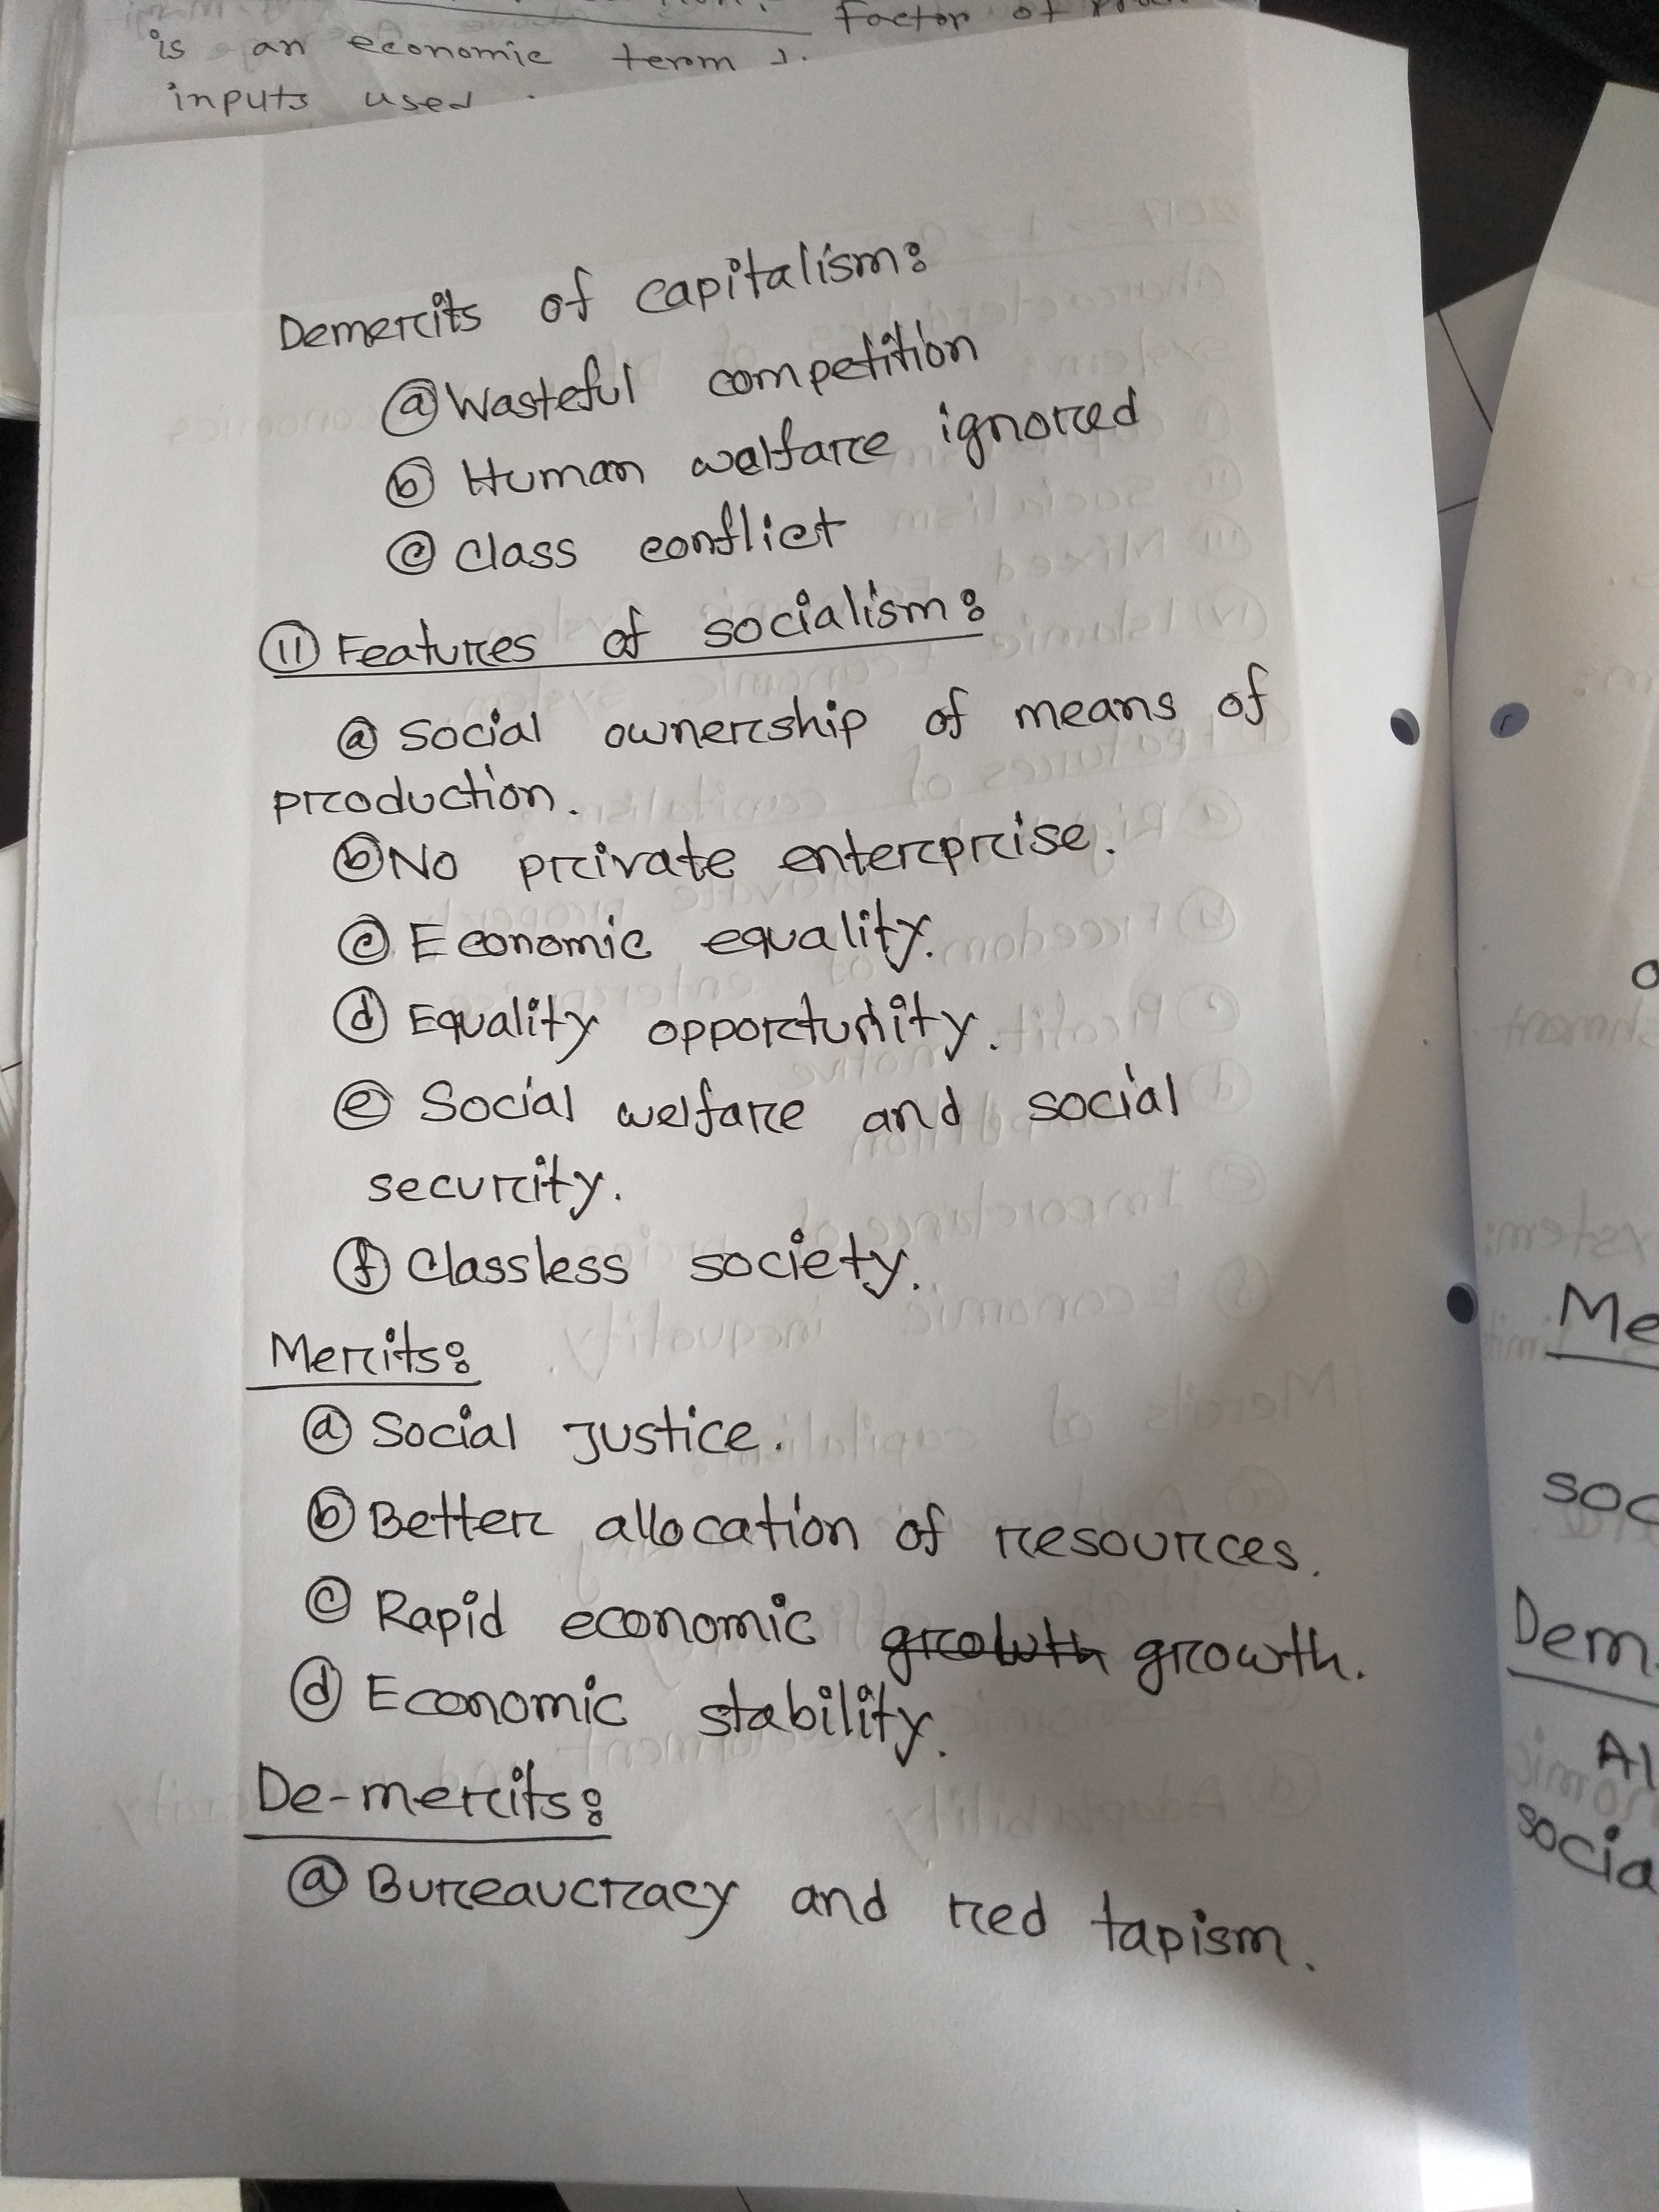 Factor of
is an economic term
inputs used
Demerits of capitalism:
ⓐ Wasteful competition
ⓑ Human welfare ignored
ⓒ Class conflict
⑪ Features of socialism:
ⓐ Social ownership of means of
production.
ⓑ No private enterprise.
ⓒ Economic equality.
ⓓ Equality opportunity.
ⓔ Social welfare and social
security.
ⓕ Classless society.
Merits:
ⓐ Social Justice.
ⓑ Better allocation of resources.
ⓒ Rapid economic growth growth.
ⓓ Economic stability.
De-merits:
ⓐ Bureaucracy and red tapism.
Me
soc
Dem
Al
socia